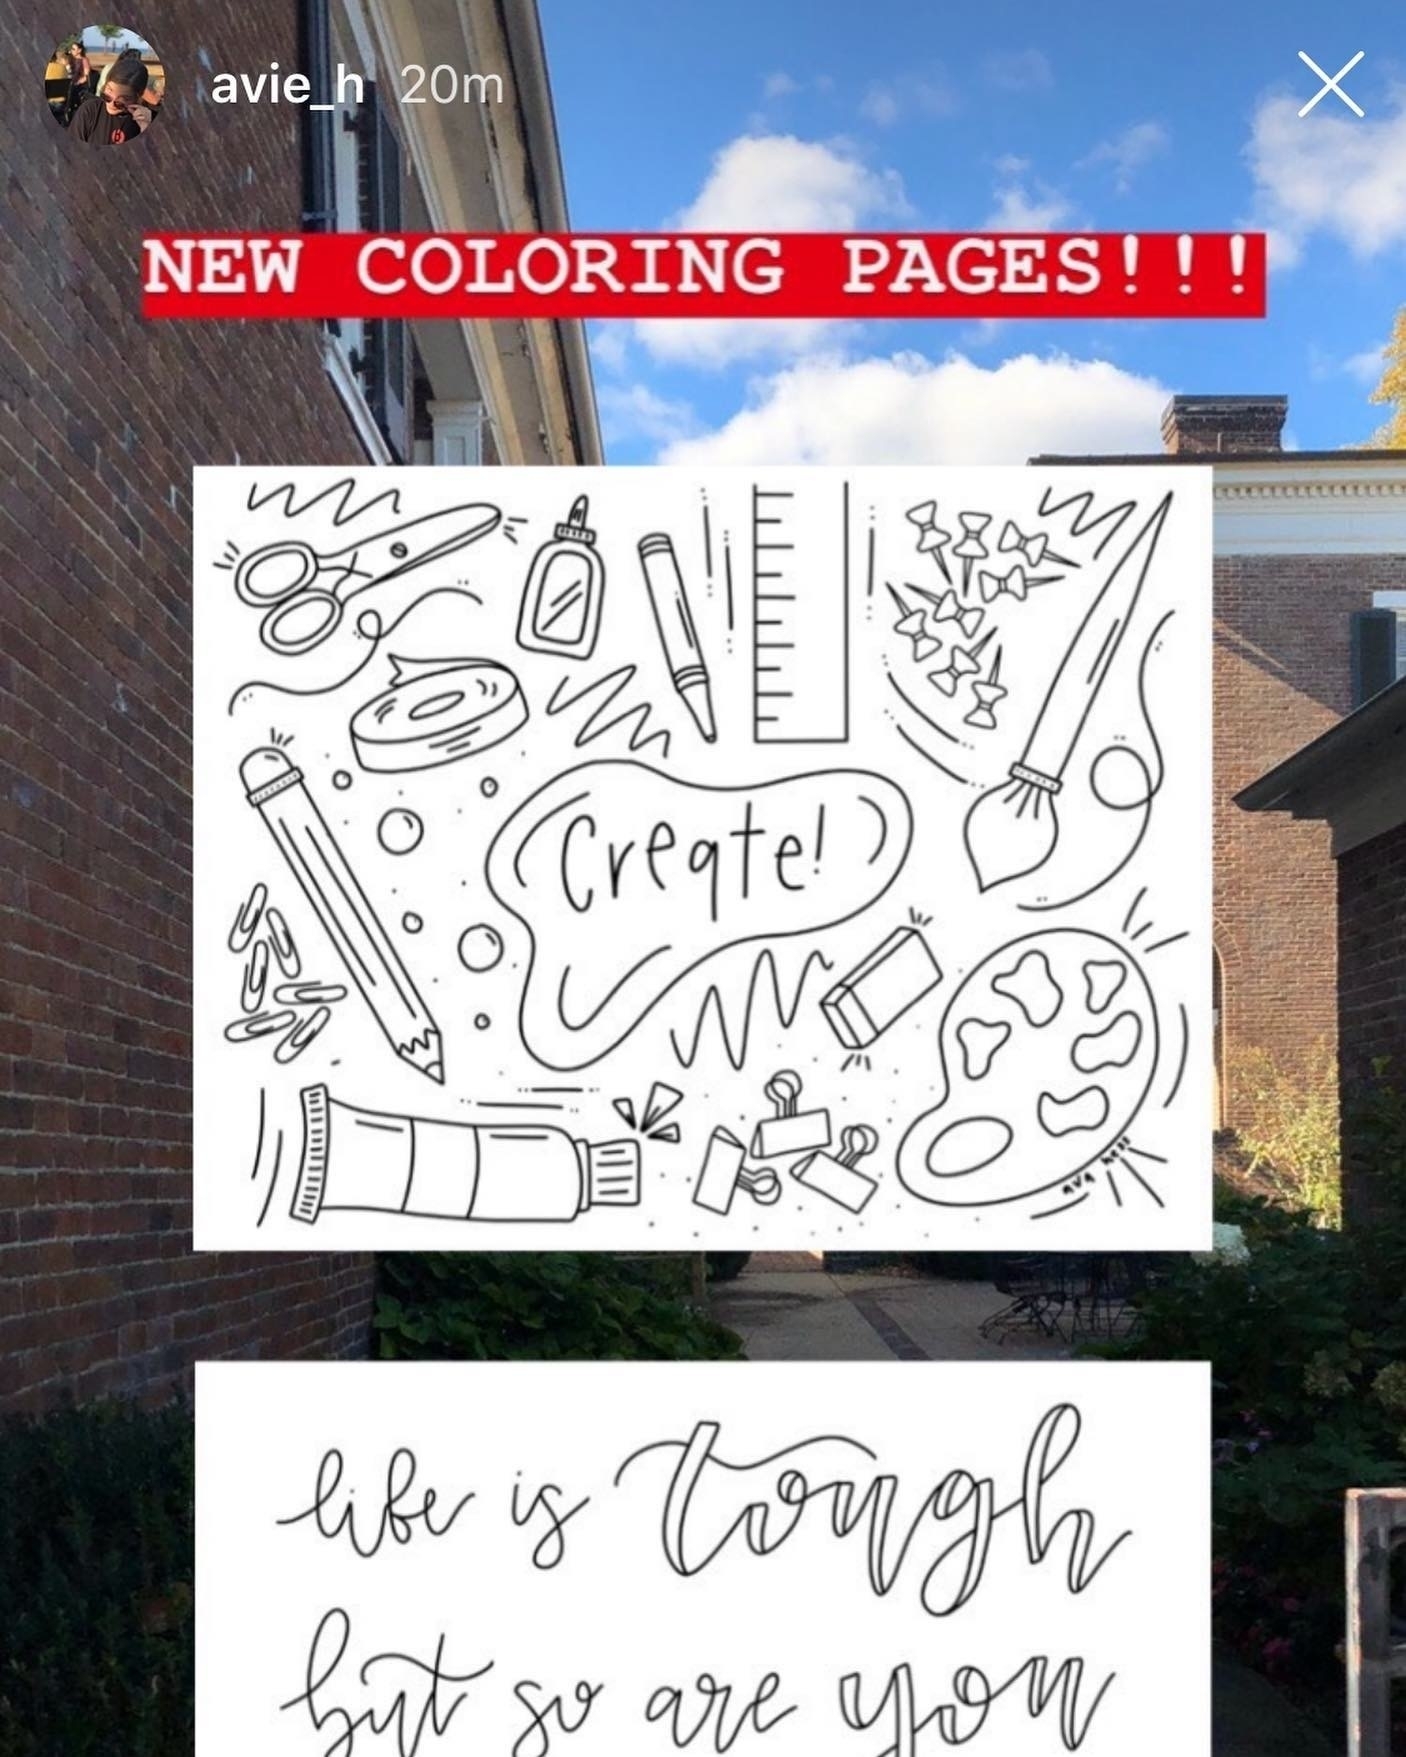 avie_h 20m
NEW COLORING PAGES!!!
Create!
ava hess
life is tough
but so are you